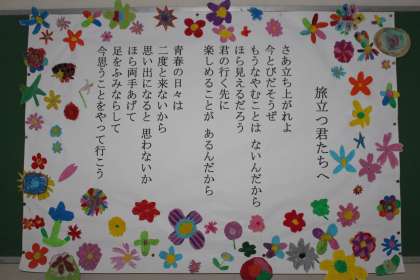 旅立つ君たちへ
さあ立ち上がれよ
今とびだそうぜ
もうなやむことは ないんだから
ほら見えるだろう
君の行く先に
楽しめることが あるんだから
青春の日々は
二度と来ないから
思い出になると 思わないか
ほら両手あげて
足をふみならして
今思うことをやって行こう